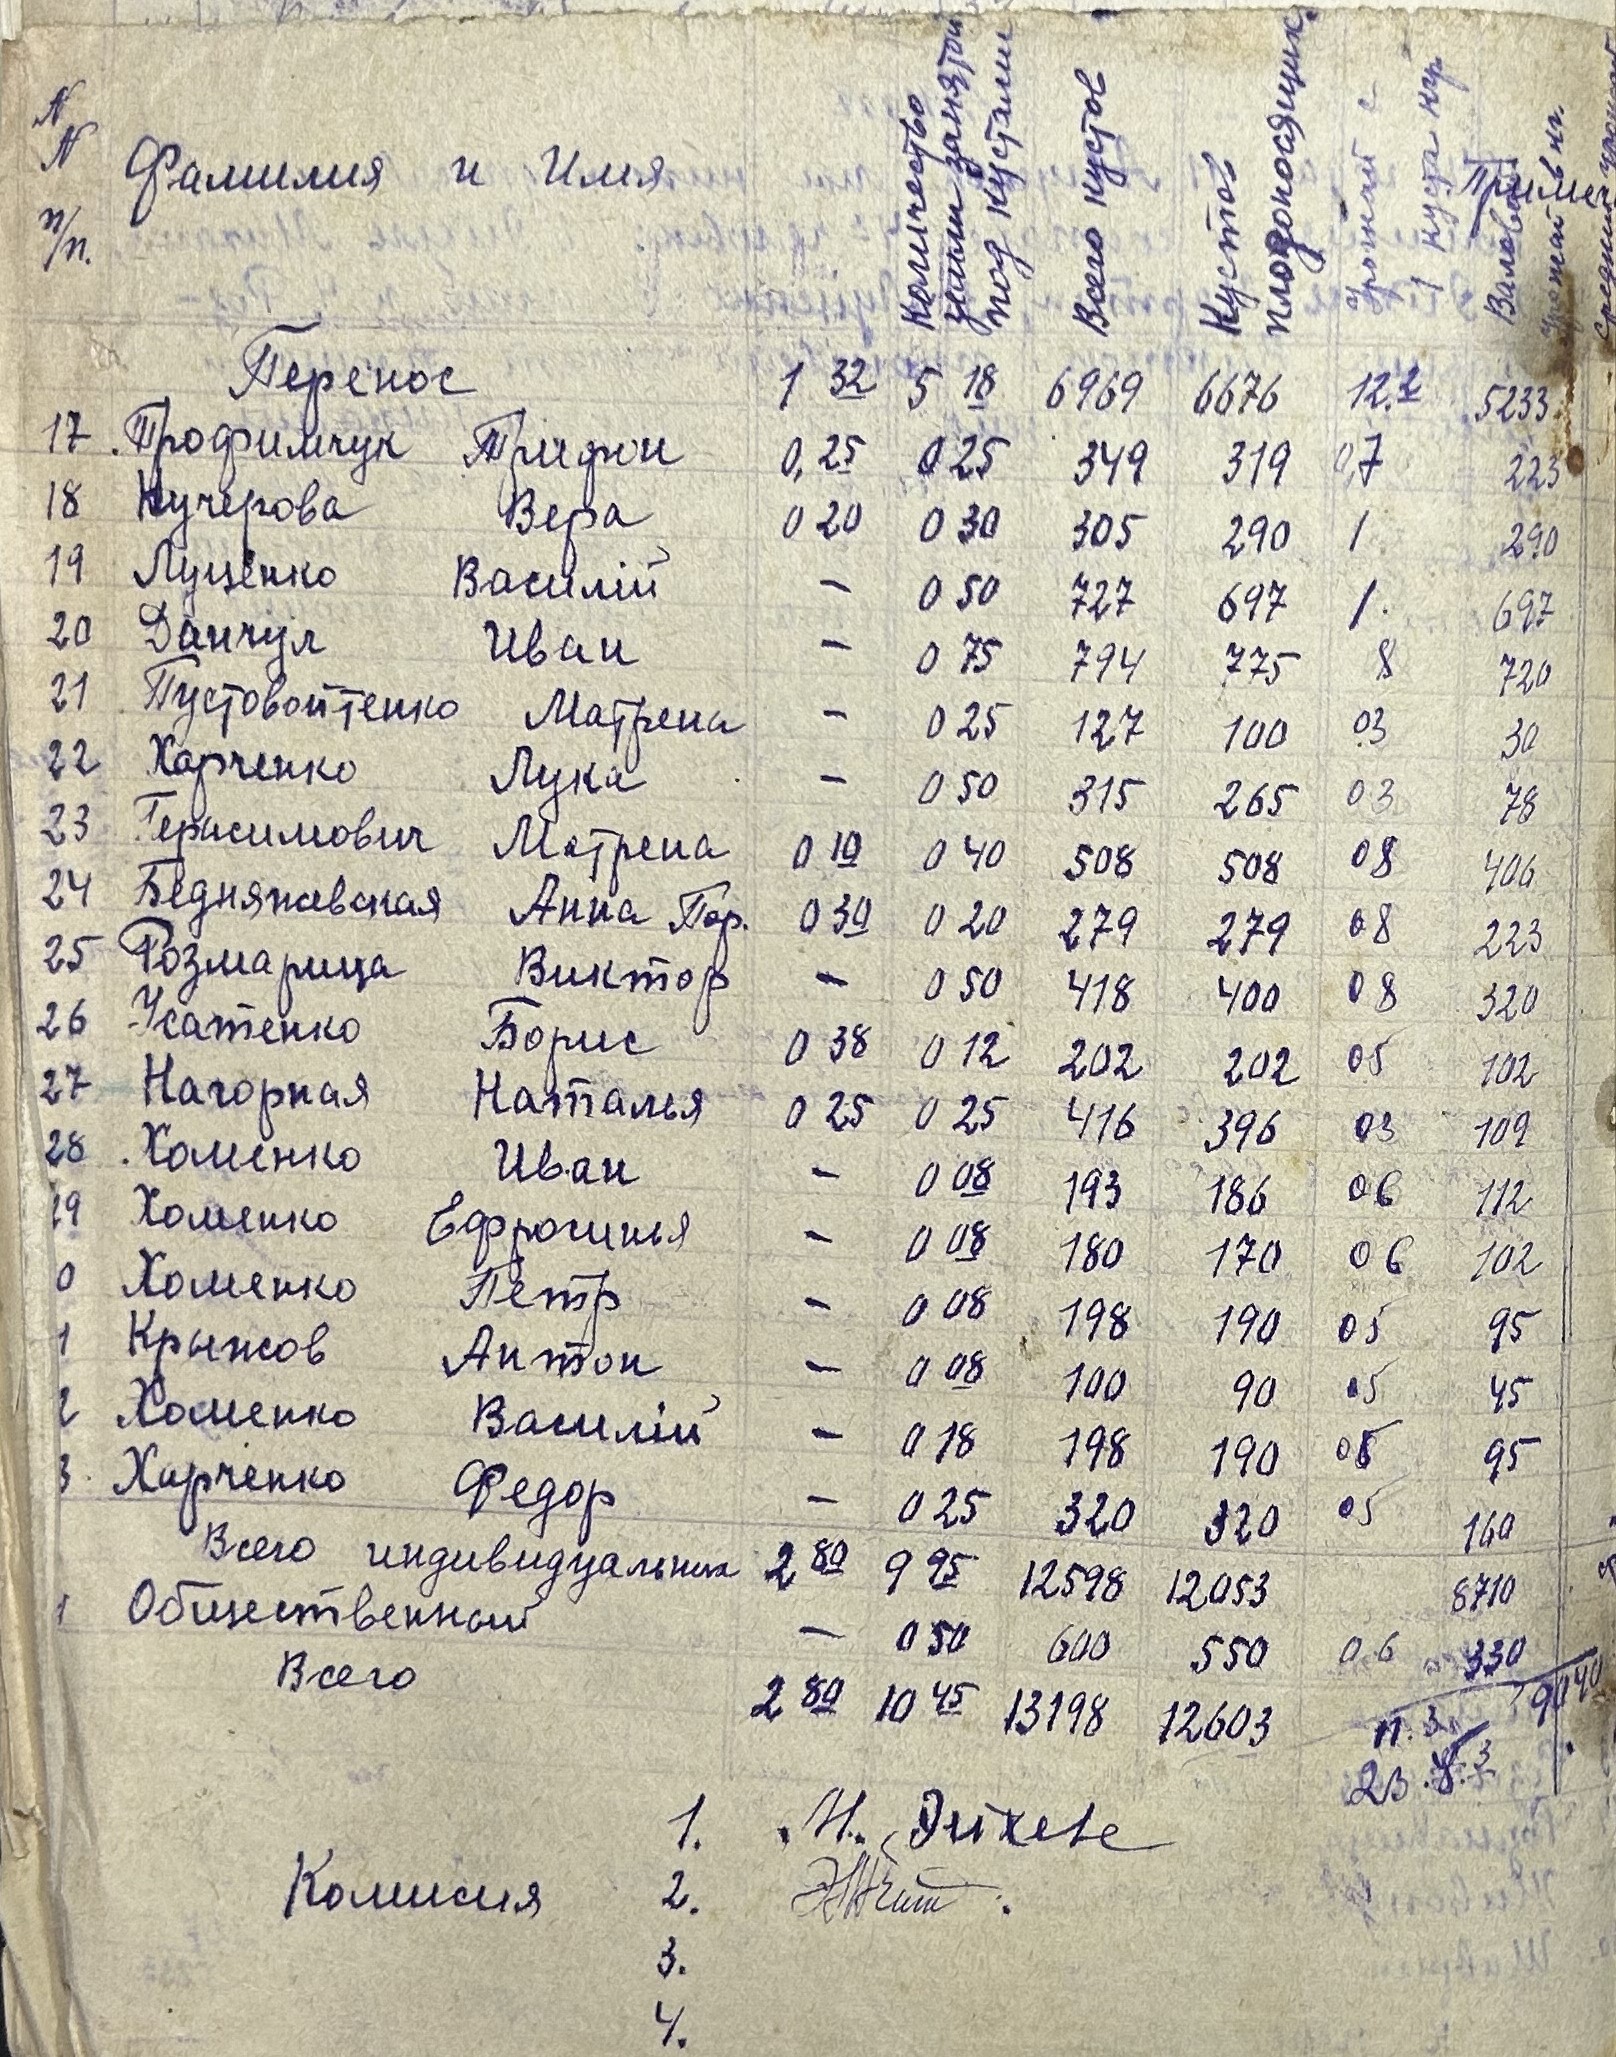 N N п/п. Фамилия и Имя Количество земли занятой под кустами Всего кустов Кустов плодоносящих Урожай с 1 куста кгр Валовой урожай в кг. Примеч
Перенос 1 32 5 18 6969 6676 12.2 5233
17. Трофимчук Трифон 0,25 0 25 349 319 0,7 223
18 Кучерова Вера 0 20 0 30 305 290 1 290
19 Луценко Василій – 0 50 727 697 1. 697
20 Данчул Иван – 0 75 794 775 8 720
21 Пустовойтенко Матрена – 0 25 127 100 03 30
22 Харченко Лука – 0 50 315 265 03 78
23 Герасимович Матрена 0 10 0 40 508 508 08 406
24 Бедняжевская Анна Пор. 0 30 0 20 279 279 08 223
25 Розмарица Виктор – 0 50 418 400 08 320
26 Усатенко Борис 0 38 0 12 202 202 05 102
27 Нагорная Наталья 0 25 0 25 416 396 03 109
28 Хоменко Иван – 0 08 193 186 06 112
29 Хоменко Ефросинья – 0 08 180 170 06 102
0 Хоменко Петр – 0 08 198 190 05 95
1 Крыжов Антон – 0 08 100 90 05 45
2 Хоменко Василій – 0 18 198 190 05 95
3. Харченко Федор – 0 25 320 320 05 160
Всего индивидуальных 2 80 9 95 12598 12053 8710
1 Общественный – 0 50 600 550 0.6 330
Всего 2 80 10 45 13198 12603 9040
п. 3
1.
Комисия 2.
3.
4.